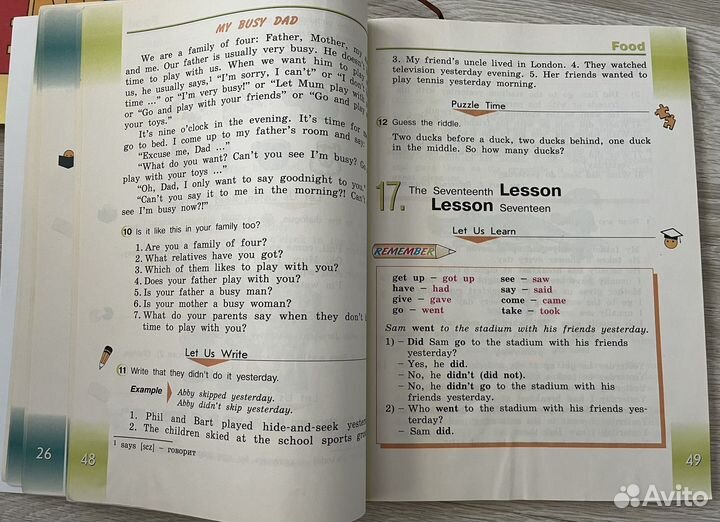 MY BUSY DAD
We are a family of four: Father, Mother, my
and me. Our father is usually very busy. He doesn't
time to play with us. When we want him to play
us, he usually says,¹ “I'm sorry, I can't” or “I don't
time ...” or “I'm very busy!” or “Let Mum play with
or “Go and play with your friends” or “Go and play
your toys.”
It's nine o'clock in the evening. It's time for me
go to bed. I come up to my father's room and say:
“Excuse me, Dad ...”
“What do you want? Can't you see I'm busy? Go
play with your toys ...”
“Oh, Dad, I only want to say goodnight to you,”
“Can't you say it to me in the morning?! Can't
see I'm busy now?!”
10 Is it like this in your family too?
1. Are you a family of four?
2. What relatives have you got?
3. Which of them likes to play with you?
4. Does your father play with you?
5. Is your father a busy man?
6. Is your mother a busy woman?
7. What do your parents say when they don't
time to play with you?
Let Us Write
11 Write that they didn't do it yesterday.
Example Abby skipped yesterday.
Abby didn't skip yesterday.
1. Phil and Bart played hide-and-seek
2. The children skied at the school sports
¹ says [sɛz] – говорит
26
48
Food
3. My friend's uncle lived in London. 4. They watched
television yesterday evening. 5. Her friends wanted to
play tennis yesterday morning.
Puzzle Time
12 Guess the riddle.
Two ducks before a duck, two ducks behind, one duck
in the middle. So how many ducks?
17. The Seventeenth Lesson
Lesson Seventeen
Let Us Learn
REMEMBER
get up – got up see – saw
have – had say – said
give – gave come – came
go – went take – took
Sam went to the stadium with his friends yesterday.
1) – Did Sam go to the stadium with his friends
yesterday?
– Yes, he did.
– No, he didn't (did not).
– No, he didn't go to the stadium with his
friends yesterday.
2) – Who went to the stadium with his friends yes-
terday?
– Sam did.
49
Avito